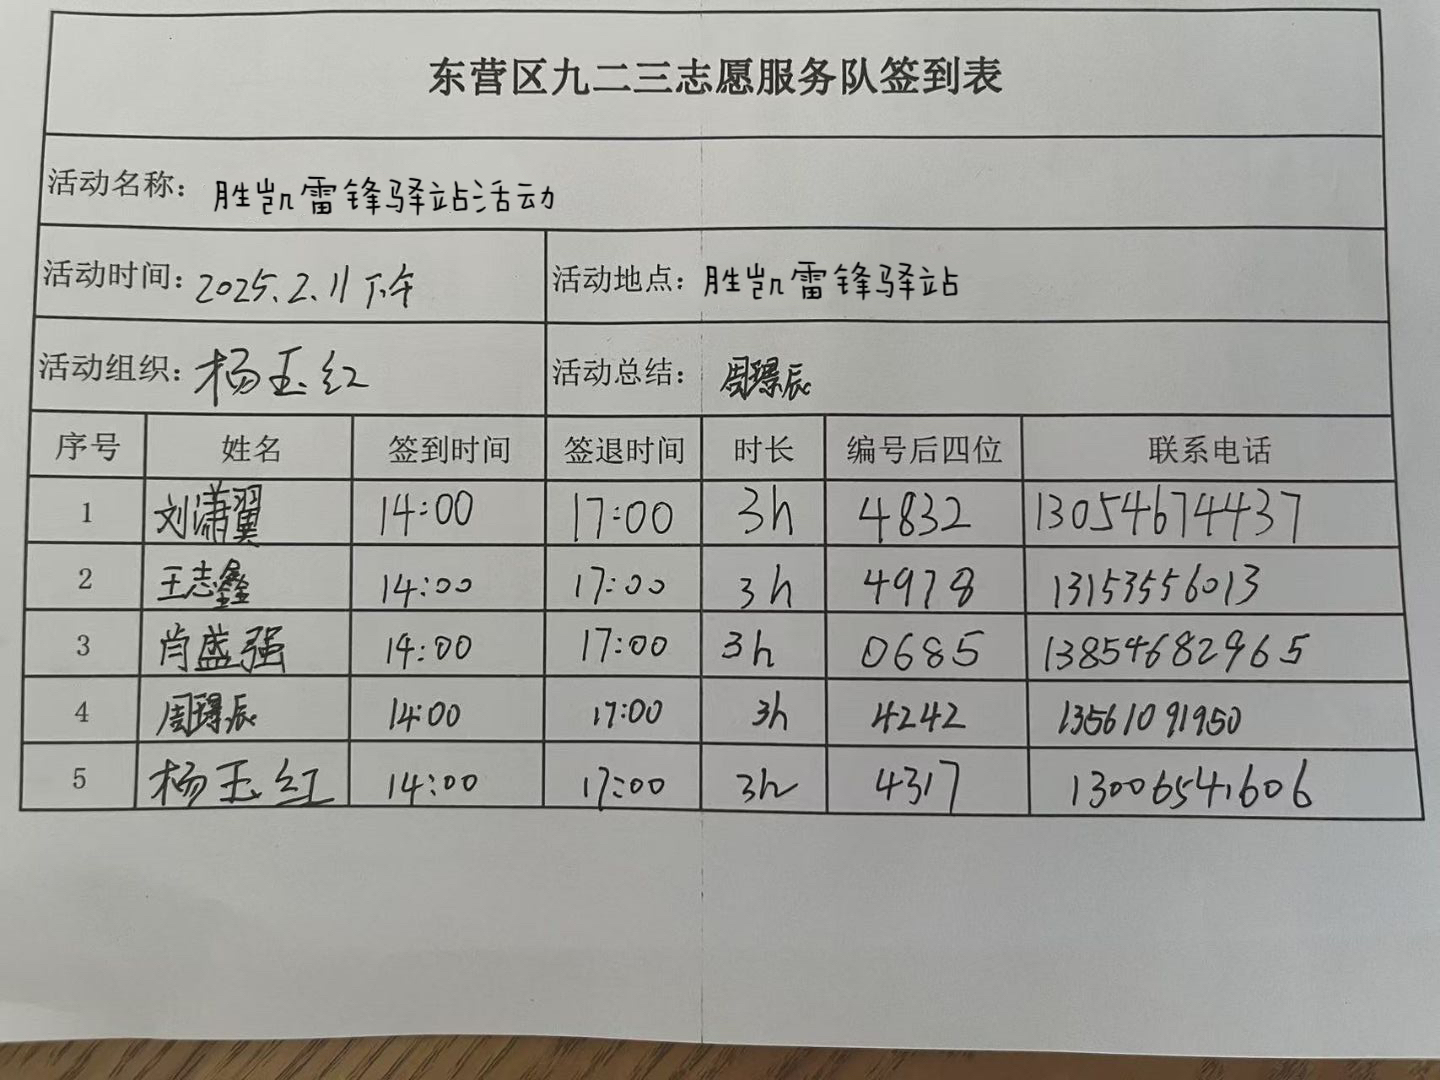 东营区九二三志愿服务队签到表
活动名称：胜凯雷锋驿站活动
活动时间：2025.2.11下午 活动地点：胜凯雷锋驿站
活动组织：杨玉红 活动总结：周璟辰
序号 姓名 签到时间 签退时间 时长 编号后四位 联系电话
1 刘潇翼 14:00 17:00 3h 4832 13054674437
2 王志鑫 14:00 17:00 3h 4978 13153556013
3 肖盛强 14:00 17:00 3h 0685 13854682965
4 周璟辰 14:00 17:00 3h 4242 13561091950
5 杨玉红 14:00 17:00 3h 4317 13006541606